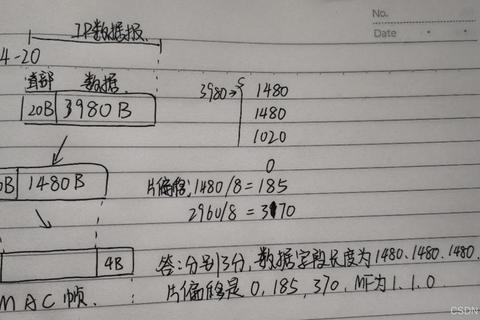 No.
Date
IP数据报
4-20
首部 数据
20B 3980B
3980→ 1480
1480
1020
0
0B 1480B
片偏移:1480/8=185
2960/8=370
4B
MAC帧.
答:分别3分,数据字段长度为1480.1480.1480.
片偏移是0,185,370,MF为1.1.0
CSDN